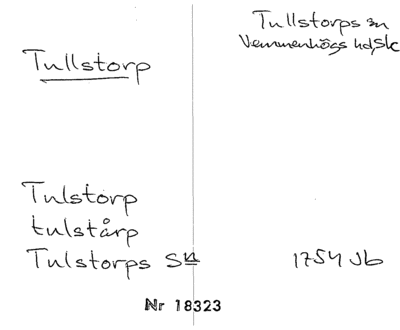 Tullstorps sn
Vemmenhögs hd, Sk
Tullstorp
Tulstorp
tulstårp
Tulstorps Sn 1754 Jb
Nr 18323